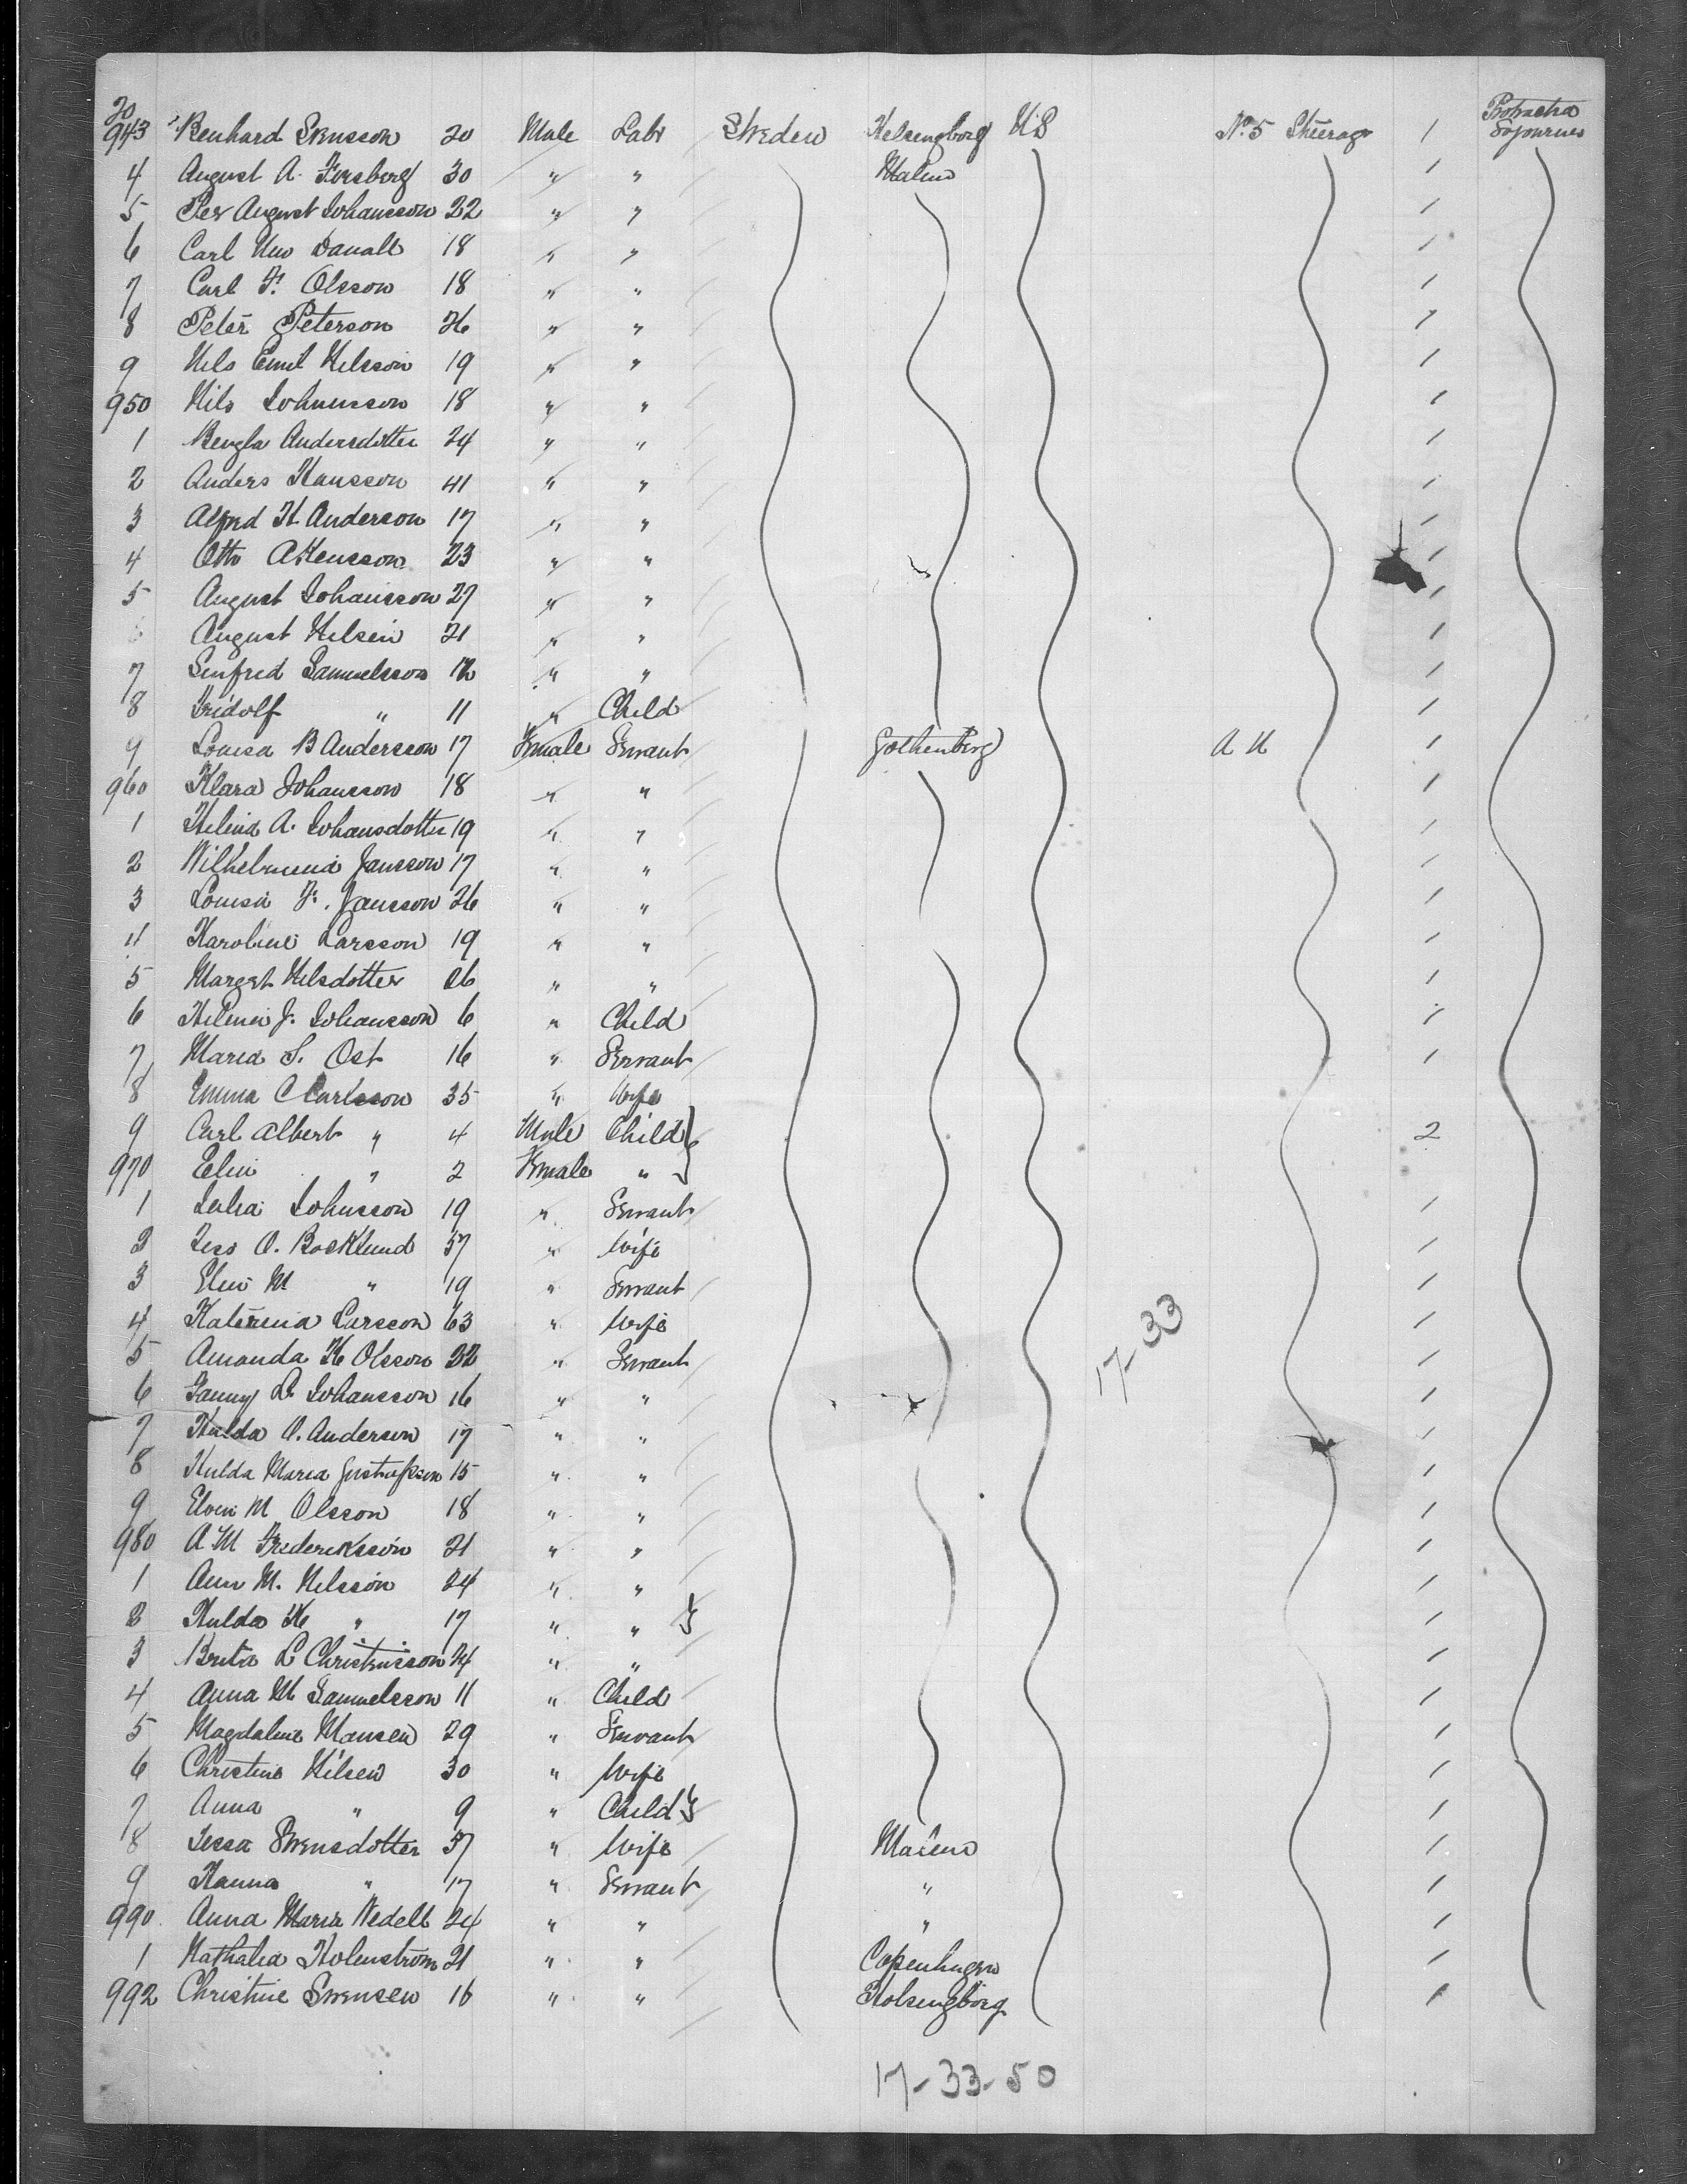 20
943 Benhard Svensson 20 Male Labr Sweden Helsingborg US No. 5 Steerage 1 Protracted Sojournes
4 August A. Forsberg 30 " " Malmo 1
5 Per August Johansson 22 " " 1
6 Carl Uno Danall 18 " " 1
7 Carl F. Olsson 18 " " 1
8 Peter Peterson 26 " " 1
9 Nels Emil Nelsson 19 " " 1
950 Nils Johnsson 18 " " 1
1 Bengta Andersdotter 24 " " 1
2 Anders Hansson 41 " " 1
3 Alfred H Anderson 17 " " 1
4 Otto 23 " " 1
5 August Johansson 27 " " 1
6 August Nelsen 21 " " 1
7 Senfred Samuelsson " " 1
8 Fridolf " 11 " Child 1
9 Louisa B Andersson 17 Female Servant Gothenberg A U 1
960 Klara Johansson 18 " " 1
1 Helena A. Johansdotter 19 " " 1
2 Wilhelmina Jansson 17 " " 1
3 Louisa F. Jansson 26 " " 1
4 Karoline Larsson 19 " " 1
5 Margrt Nelsdotter 26 " " 1
6 Helena J. Johansson 6 " Child 1
7 Maria S. Ost 16 " Servant 1
8 Emma C Carlsson 35 " Wife
9 Carl Albert " 4 Male Child } 2
970 Elin " 2 Female "
1 Julia Johnsson 19 " Servant 1
2 O. Backlund 57 " Wife 1
3 Elin M " 19 " Servant 1
4 Katerina Larsson 63 " Wife 17-33 1
5 Amanda K Olsson 22 " Servant 1
6 Fanny L. Johansson 16 " " 1
7 Hulda O. Anderson 17 " " 1
8 Hulda Maria Gustafsson 15 " " 1
9 M Olsson 18 " " 1
980 A M Frederiksson 21 " " 1
1 Ann M. Nelsson 24 " " 1
2 Hulda K " 17 " " } 1
3 Brita L Christensson 24 " " 1
4 Anna M Samuelsson 11 " Child 1
5 Magdalena Mansen 29 " Servant 1
6 Christine Nilsen 30 " Wife 1
7 Anna " 9 " Child } 1
8 Jessa Svensdotter 37 " Wife Malmo 1
9 Hanna " 17 " Servant " 1
990 Anna Maria Wedell 24 " " " 1
1 Nathalia Holmstrom 21 " " Copenhagen 1
992 Christine Svensen 16 " " Helsingborg 1
17-33-50